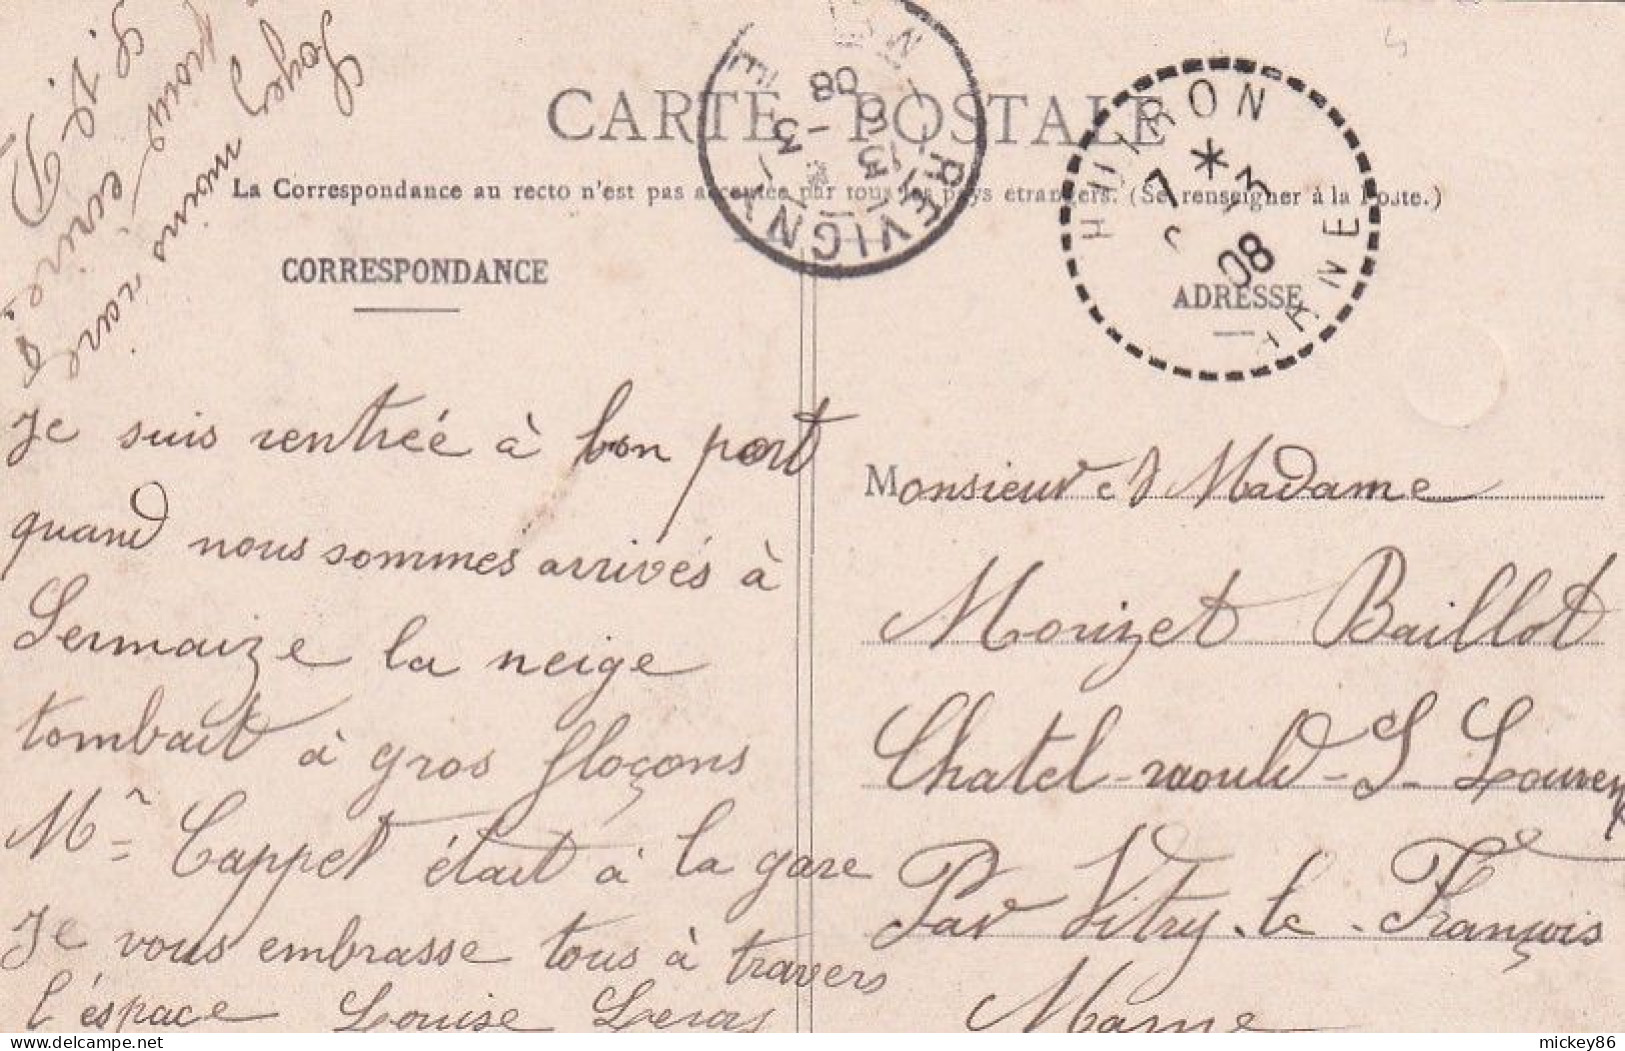 Soyez moins rare
pour écrire
S.V.P
CARTE POSTALE
La Correspondance au recto n'est pas acceptée par tous les pays étrangers. (Se renseigner à la Poste.)
CORRESPONDANCE
ADRESSE
REVIGNY
13
3
08
HUIRON
MARNE
7 * 3
08
Je suis rentrée à bon port
quand nous sommes arrivés à
Sermaize la neige
tombait à gros floçons
Mr Cappet était à la gare
Je vous embrasse tous à travers
l'éspace Louise Leras
Monsieur et Madame
Morizet Baillot
Chatel-raould-St Louvent
Par Vitry-le-François
Marne
mickey86